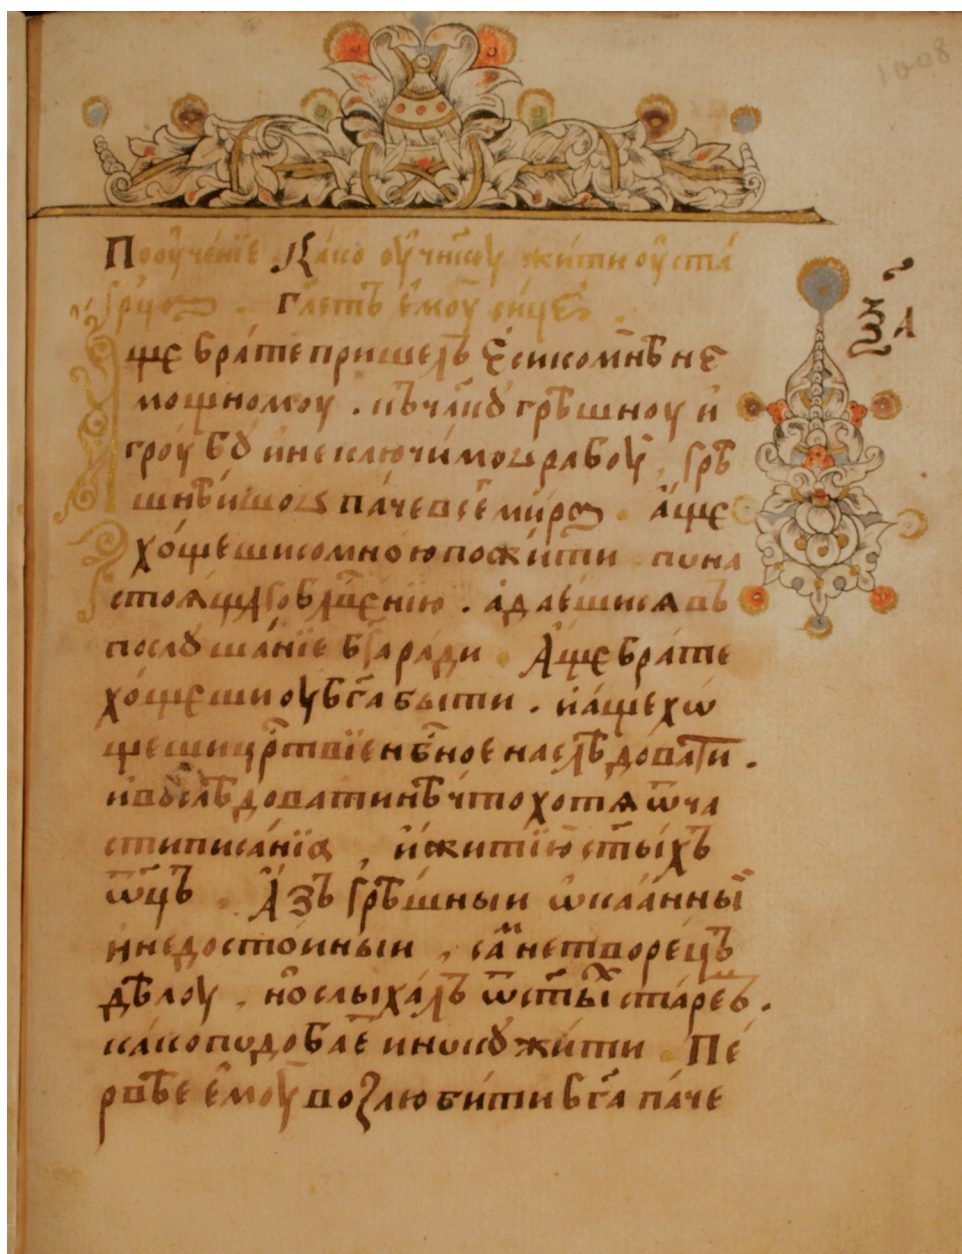 1008
Поѹче́нїе . Ка́ко ѹ҆ченикꙋ̀ жи́ти ѹ҆ ста́
рца . Гл҃етъ є҆мѹ̀ си́це .
҃за
А҆ще бра́те прише́лъ є҆сѝ ко мнѣ̀ не
мощномоу . и҆ чл҃кꙋ̀ грѣ́шноу и҆
гроу́бꙋ и҆ неключи́мꙋ рабоу̀ , грѣ
шнѣ́ишꙋ па́че всего̀ ми́ра . а҆ще
хо́щеши со мно́ю пожи́ти по на
стоѧщ б҃їю . а҆ даѐшисѧ въ
послꙋша́нїе бг҃а ра́ди . А҆ще бра́те
хо́щеши ѹ҆ бг҃а бы́ти . и҆ а҆ще хѡ
щеши цр҃твїе нб҃ное наслѣ́довати .
и҆ вослѣ́довати нѣ́что хотѧ ѿ ча
сти писа́нїѧ , и҆ житїю̀ ст҃ы́хъ
ѻ҆ц҃ъ . А҆зъ грѣ́шныи ѡ҆каа́нныи
и҆ недосто́иныи , са́м не творе́цъ
дѣ́лоу , но̀ слыха́лъ ѿ ст҃ы́х ста́рецъ .
ка́ко подоба́етъ и҆нокꙋ̀ жи́ти . Пе́
рвѣе є҆мѹ̀ возлюби́ти бг҃а па́че